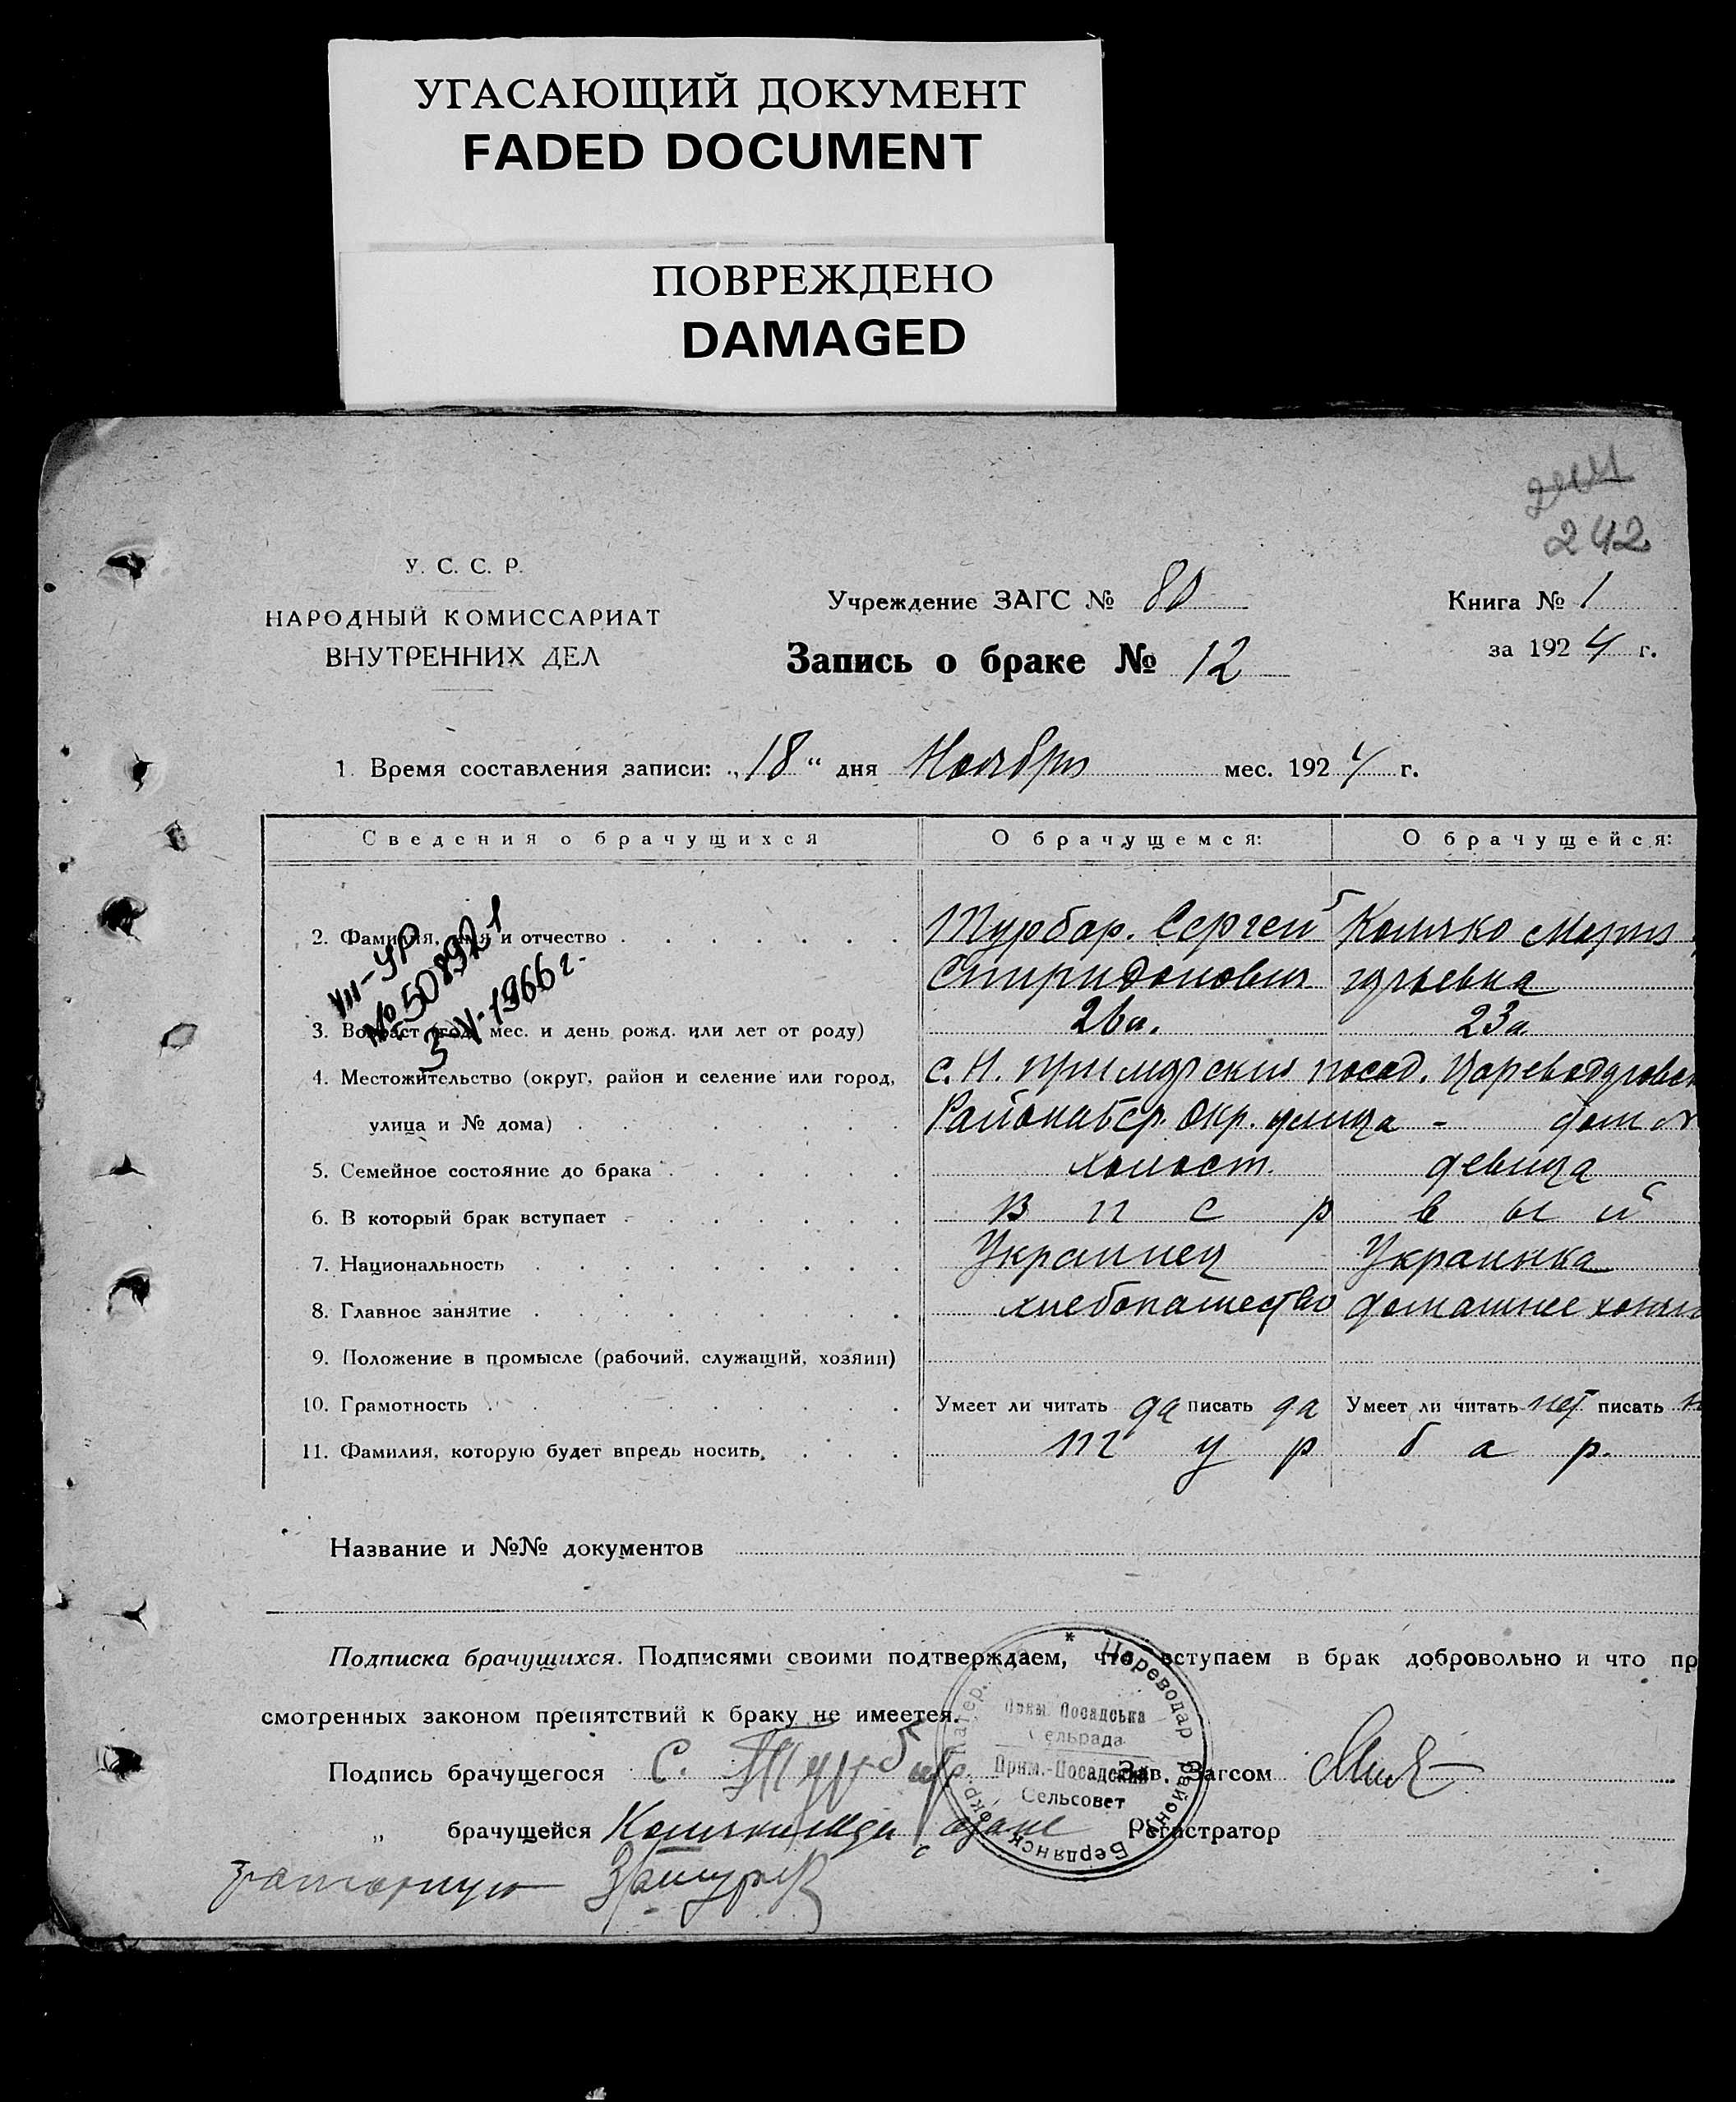 УГАСАЮЩИЙ ДОКУМЕНТ
FADED DOCUMENT
ПОВРЕЖДЕНО
DAMAGED
242
У. С. С. Р.
НАРОДНЫЙ КОМИССАРИАТ
ВНУТРЕННИХ ДЕЛ
Учреждение ЗАГС № 80
Запись о браке № 12
Книга № 1
за 1924 г.
1. Время составления записи: „18“ дня Ноября мес. 1924 г.
Сведения о брачущихся О брачущемся: О брачущейся:
2. Фамилия, имя и отчество Турбар. Сергей Коляко Мария
Спиридонович гурьевна
VII-УР
№ 508921
3 V-1966 г.
3. Возраст (год, мес. и день рожд. или лет от роду) 26л. 23л.
4. Местожительство (округ, район и селение или город, с. Н. Приморский посад. Цареводаровск
улица и № дома) Района Бер. Окр. улица - дом №
5. Семейное состояние до брака холост девица
6. В который брак вступает в п е р в ы й
7. Национальность Украинец Украинка
8. Главное занятие хлебопашество домашнее хозяй
9. Положение в промысле (рабочий, служащий, хозяин)
10. Грамотность Умеет ли читать да писать да Умеет ли читать нет писать н
11. Фамилия, которую будет впредь носить Т у р б а р.
Название и №№ документов
Подписка брачущихся. Подписями своими подтверждаем, что вступаем в брак добровольно и что пр
смотренных законом препятствий к браку не имеется.
Подпись брачущегося С. Турбар Зав. Загсом
„ брачущейся Регистратор
* Цареводар район Бердянск окр. Катер.
Прим. Посадська
Сельрада
Прим.-Посадский
Сельсовет